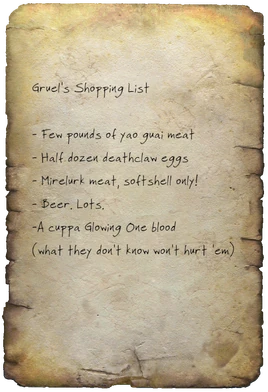 Gruel's Shopping List
- Few pounds of yao guai meat
- Half dozen deathclaw eggs
- Mirelurk meat, softshell only!
- Beer. Lots.
-A cuppa Glowing One blood
(what they don't know won't hurt 'em)